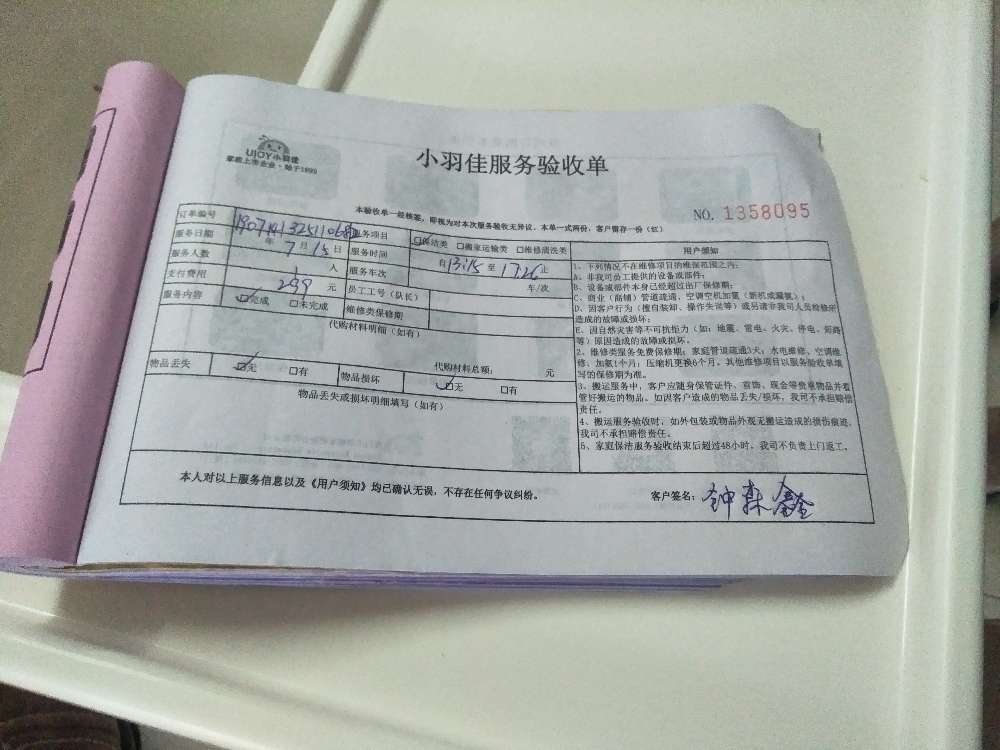 UJOY小羽佳
家政上市企业·始于1999
小羽佳服务验收单
NO. 1358095
本验收单一经核签，即视为对本次服务验收无异议。本单一式两份，客户留存一份（红）
订单编号
服务项目 保洁类 □搬家运输类 □维修清洗类
用户须知
服务日期 年 7 月 15 日 服务时间 自 13:15 至 17:26 止
服务人数 1 人 服务车次 车/次
支付费用 299 元 员工工号（队长）
服务内容 ☑完成 □未完成 维修类保修期
代购材料明细（如有）
代购材料总额： 元
物品丢失 ☑无 □有 物品损坏 ☑无 □有
物品丢失或损坏明细填写（如有）
1、下列情况不在维修项目的维保范围之内：
A、非我司员工提供的设备或部件；
B、设备或部件本身已经超过出厂保修期；
C、商业（商铺）管道疏通、空调空机加氟（新机或漏氟）；
D、因客户行为（擅自装卸、操作失误等）或另请非我司人员检修所
造成的故障或损坏；
E、因自然灾害等不可抗拒力（如：地震、雷电、火灾、停电、短路
等）原因造成的故障或损坏。
2、维修类服务免费保修期：家庭管道疏通3天；水电维修、空调维
修、加氟1个月；压缩机更换6个月。其他维修项目以服务验收单填
写的保修期为准。
3、搬运服务中，客户应随身保管证件、首饰、现金等贵重物品并看
管好搬运的物品。如因客户造成的物品丢失/损坏，我司不承担赔偿
责任。
4、搬运服务验收时，如外包装或物品外观无搬运造成的损伤痕迹，
我司不承担赔偿责任。
5、家庭保洁服务验收结束后超过48小时，我司不负责上门返工。
本人对以上服务信息以及《用户须知》均已确认无误，不存在任何争议纠纷。
客户签名： 钟森鑫